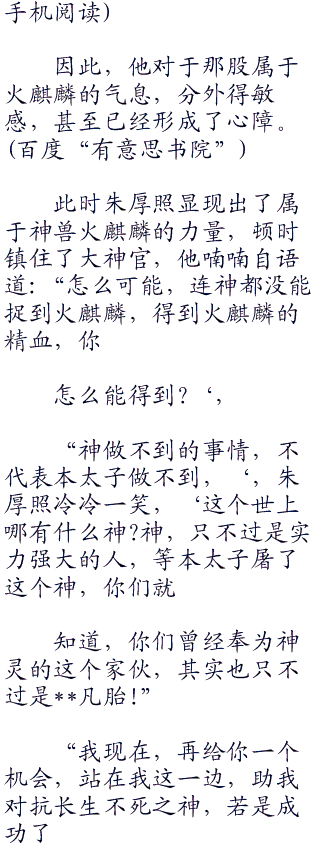 手机阅读)
因此，他对于那股属于
火麒麟的气息，分外得敏
感，甚至已经形成了心障。
(百度“有意思书院”)
此时朱厚照显现出了属
于神兽火麒麟的力量，顿时
镇住了大神官，他喃喃自语
道：“怎么可能，连神都没能
捉到火麒麟，得到火麒麟的
精血，你
怎么能得到？‘，
“神做不到的事情，不
代表本太子做不到，‘，朱
厚照冷冷一笑，‘这个世上
哪有什么神?神，只不过是实
力强大的人，等本太子屠了
这个神，你们就
知道，你们曾经奉为神
灵的这个家伙，其实也只不
过是**凡胎!”
“我现在，再给你一个
机会，站在我这一边，助我
对抗长生不死之神，若是成
功了